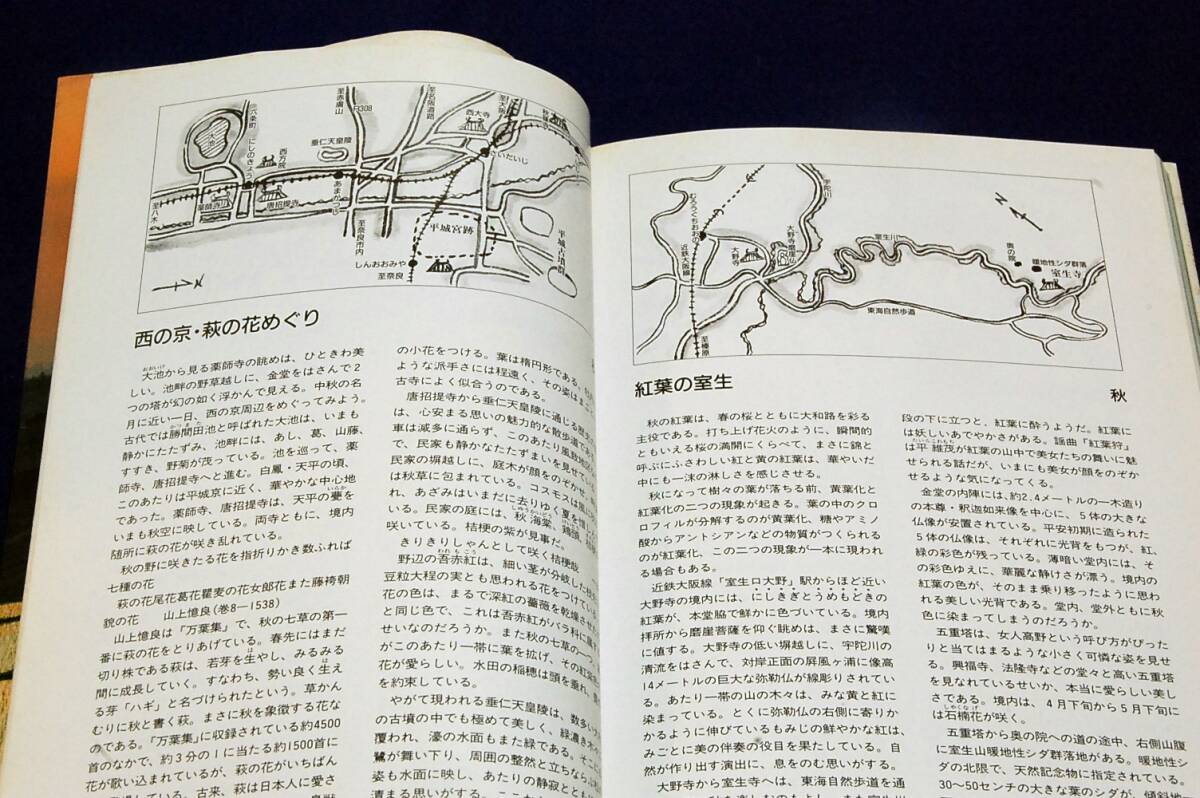 至六条町
大池
にしのきょう
西方院
薬師寺
唐招提寺
至八木
垂仁天皇陵
あまがつじ
至赤膚山
R308
至奈良市内
至阪奈道路
西大寺
至大阪
さいだいじ
平城宮跡
しんおおみや
至奈良
平城古墳群
N
西の京・萩の花めぐり
大池から見る薬師寺の眺めは、ひときわ美
おおいけ
しい。池畔の野草越しに、金堂をはさんで2
つの塔が幻の如く浮かんで見える。中秋の名
月に近い一日、西の京周辺をめぐってみよう。
古代では勝間田池と呼ばれた大池は、いまも
かつまた
静かにたたずみ、池畔には、あし、葛、山藤、
すすき、野菊が茂っている。池を巡って、薬
師寺、唐招提寺へと進む。白鳳・天平の頃、
このあたりは平城京に近く、華やかな中心地
であった。薬師寺、唐招提寺は、天平の甍を
いらか
いまも秋空に映している。両寺ともに、境内
随所に萩の花が咲き乱れている。
秋の野に咲きたる花を指折りかき数ふれば
七種の花
萩の花尾花葛花瞿麦の花女郎花また藤袴朝
貌の花　山上憶良（巻8―1538）
山上憶良は「万葉集」で、秋の七草の第一
番に萩の花をとりあげている。春先にはまだ
切り株である萩は、若芽を生やし、みるみる
は
間に成長していく。すなわち、勢い良く生え
は
る芽「ハギ」と名づけられたという。草かん
むりに秋と書く萩。まさに秋を象徴する花な
のである。「万葉集」に収録されている約4500
首のなかで、約3分の1に当たる約1500首に
花が歌い込まれているが、萩の花がいちばん
ている。古来、萩は日本人に愛さ
の小花をつける。葉は楕円形である。
ような派手さには程遠く、その姿はまこ
古寺によく似合うのである。
唐招提寺から垂仁天皇陵に通じる歴史の
は、心安まる思いの魅力的な散歩道であ
車は滅多に通らず、このあたり風致地区
で、民家も静かなたたずまいを見せてい
民家の塀越しに、庭木が顔をのぞかせ、
は秋草に包まれている。コスモスは風に
れ、あざみはいまだに去りゆく夏を惜し
いる。民家の庭には、秋海棠、鶏頭、
しゅうかいどう
けいとう
咲いている。桔梗の紫が見事だ。
きりきりしゃんとして咲く桔梗
野辺の吾赤紅は、細い茎が分岐した枝
われもこう
豆粒大程の実とも思われる花をつけてい
花の色は、まるで深紅の薔薇を乾燥させ
と同じ色で、これは吾赤紅がバラ科に属
せいなのだろうか。また秋の七草の一つ
がこのあたり一帯に葉を拡げ、その紅紫
花が愛らしい。水田の稲穂は頭を垂れ、
を約束している。
やがて現われる垂仁天皇陵は、数多い
の古墳の中でも極めて美しく、緑濃き木
覆われ、濠の水面もまた緑である。そこ
鷺が舞い下り、周囲の整然と立ちならぶ
姿も水面に映し、あたりの静寂とともに
清まる思いがする。
むろうぐちおおの
近鉄大阪線
至榛原
大野寺
大野寺磨崖仏
宇陀川
室生川
東海自然歩道
奥の院
暖地性シダ群落
室生寺
N
紅葉の室生
秋
秋の紅葉は、春の桜とともに大和路を彩る
主役である。打ち上げ花火のように、瞬間的
ともいえる桜の満開にくらべて、まさに錦と
呼ぶにふさわしい紅と黄の紅葉は、華やいだ
中にも一沫の淋しさを感じさせる。
秋になって樹々の葉が落ちる前、黄葉化と
紅葉化の二つの現象が起きる。葉の中のクロ
ロフィルが分解するのが黄葉化、糖やアミノ
酸からアントシアンなどの物質がつくられる
のが紅葉化、この二つの現象が一本に現われ
る場合もある。
近鉄大阪線「室生口大野」駅からほど近い
大野寺の境内には、にしきぎとうめもどきの
紅葉が、本堂脇で鮮かに色づいている。境内
拝所から磨崖菩薩を仰ぐ眺めは、まさに驚嘆
に値する。大野寺の低い塀越しに、宇陀川の
清流をはさんで、対岸正面の屏風ヶ浦に像高
14メートルの巨大な弥勒仏が線彫りされてい
る。あたり一帯の山の木々は、みな黄と紅に
染まっている。とくに弥勒仏の右側に寄りか
かるように伸びているもみじの鮮やかな紅は、
みごとに美の伴奏の役目を果たしている。自
然が作り出す演出に、息をのむ思いがする。
大野寺から室生寺へは、東海自然歩道を通
段の下に立つと、紅葉に酔うようだ。紅葉に
は妖しいあでやかさがある。謡曲「紅葉狩」
は平維茂が紅葉の山中で美女たちの舞いに魅
たいらこれもち
せられる話だが、いまにも美女が顔をのぞか
せるような気になってくる。
金堂の内陣には、約2.4メートルの一木造り
の本尊・釈迦如来像を中心に、5体の大きな
仏像が安置されている。平安初期に造られた
5体の仏像は、それぞれに光背をもつが、紅、
緑の彩色が残っている。薄暗い堂内には、そ
の彩色ゆえに、華麗な静けさが漂う。境内の
紅葉の色が、そのまま乗り移ったように思わ
れる美しい光背である。堂内、堂外ともに秋
色に染まってしまうのだろうか。
五重塔は、女人高野という呼び方がぴった
りと当てはまるような小さく可憐な姿を見せ
る。興福寺、法隆寺などの堂々と高い五重塔
を見なれているせいか、本当に愛らしい美し
さである。境内は、4月下旬から5月下旬に
は石楠花が咲く。
しゃくなげ
五重塔から奥の院への道の途中、右側山腹
に室生山暖地性シダ群落地がある。暖地性シ
ダの北限で、天然記念物に指定されている。
30〜50センチの大きな葉のシダが、傾斜地